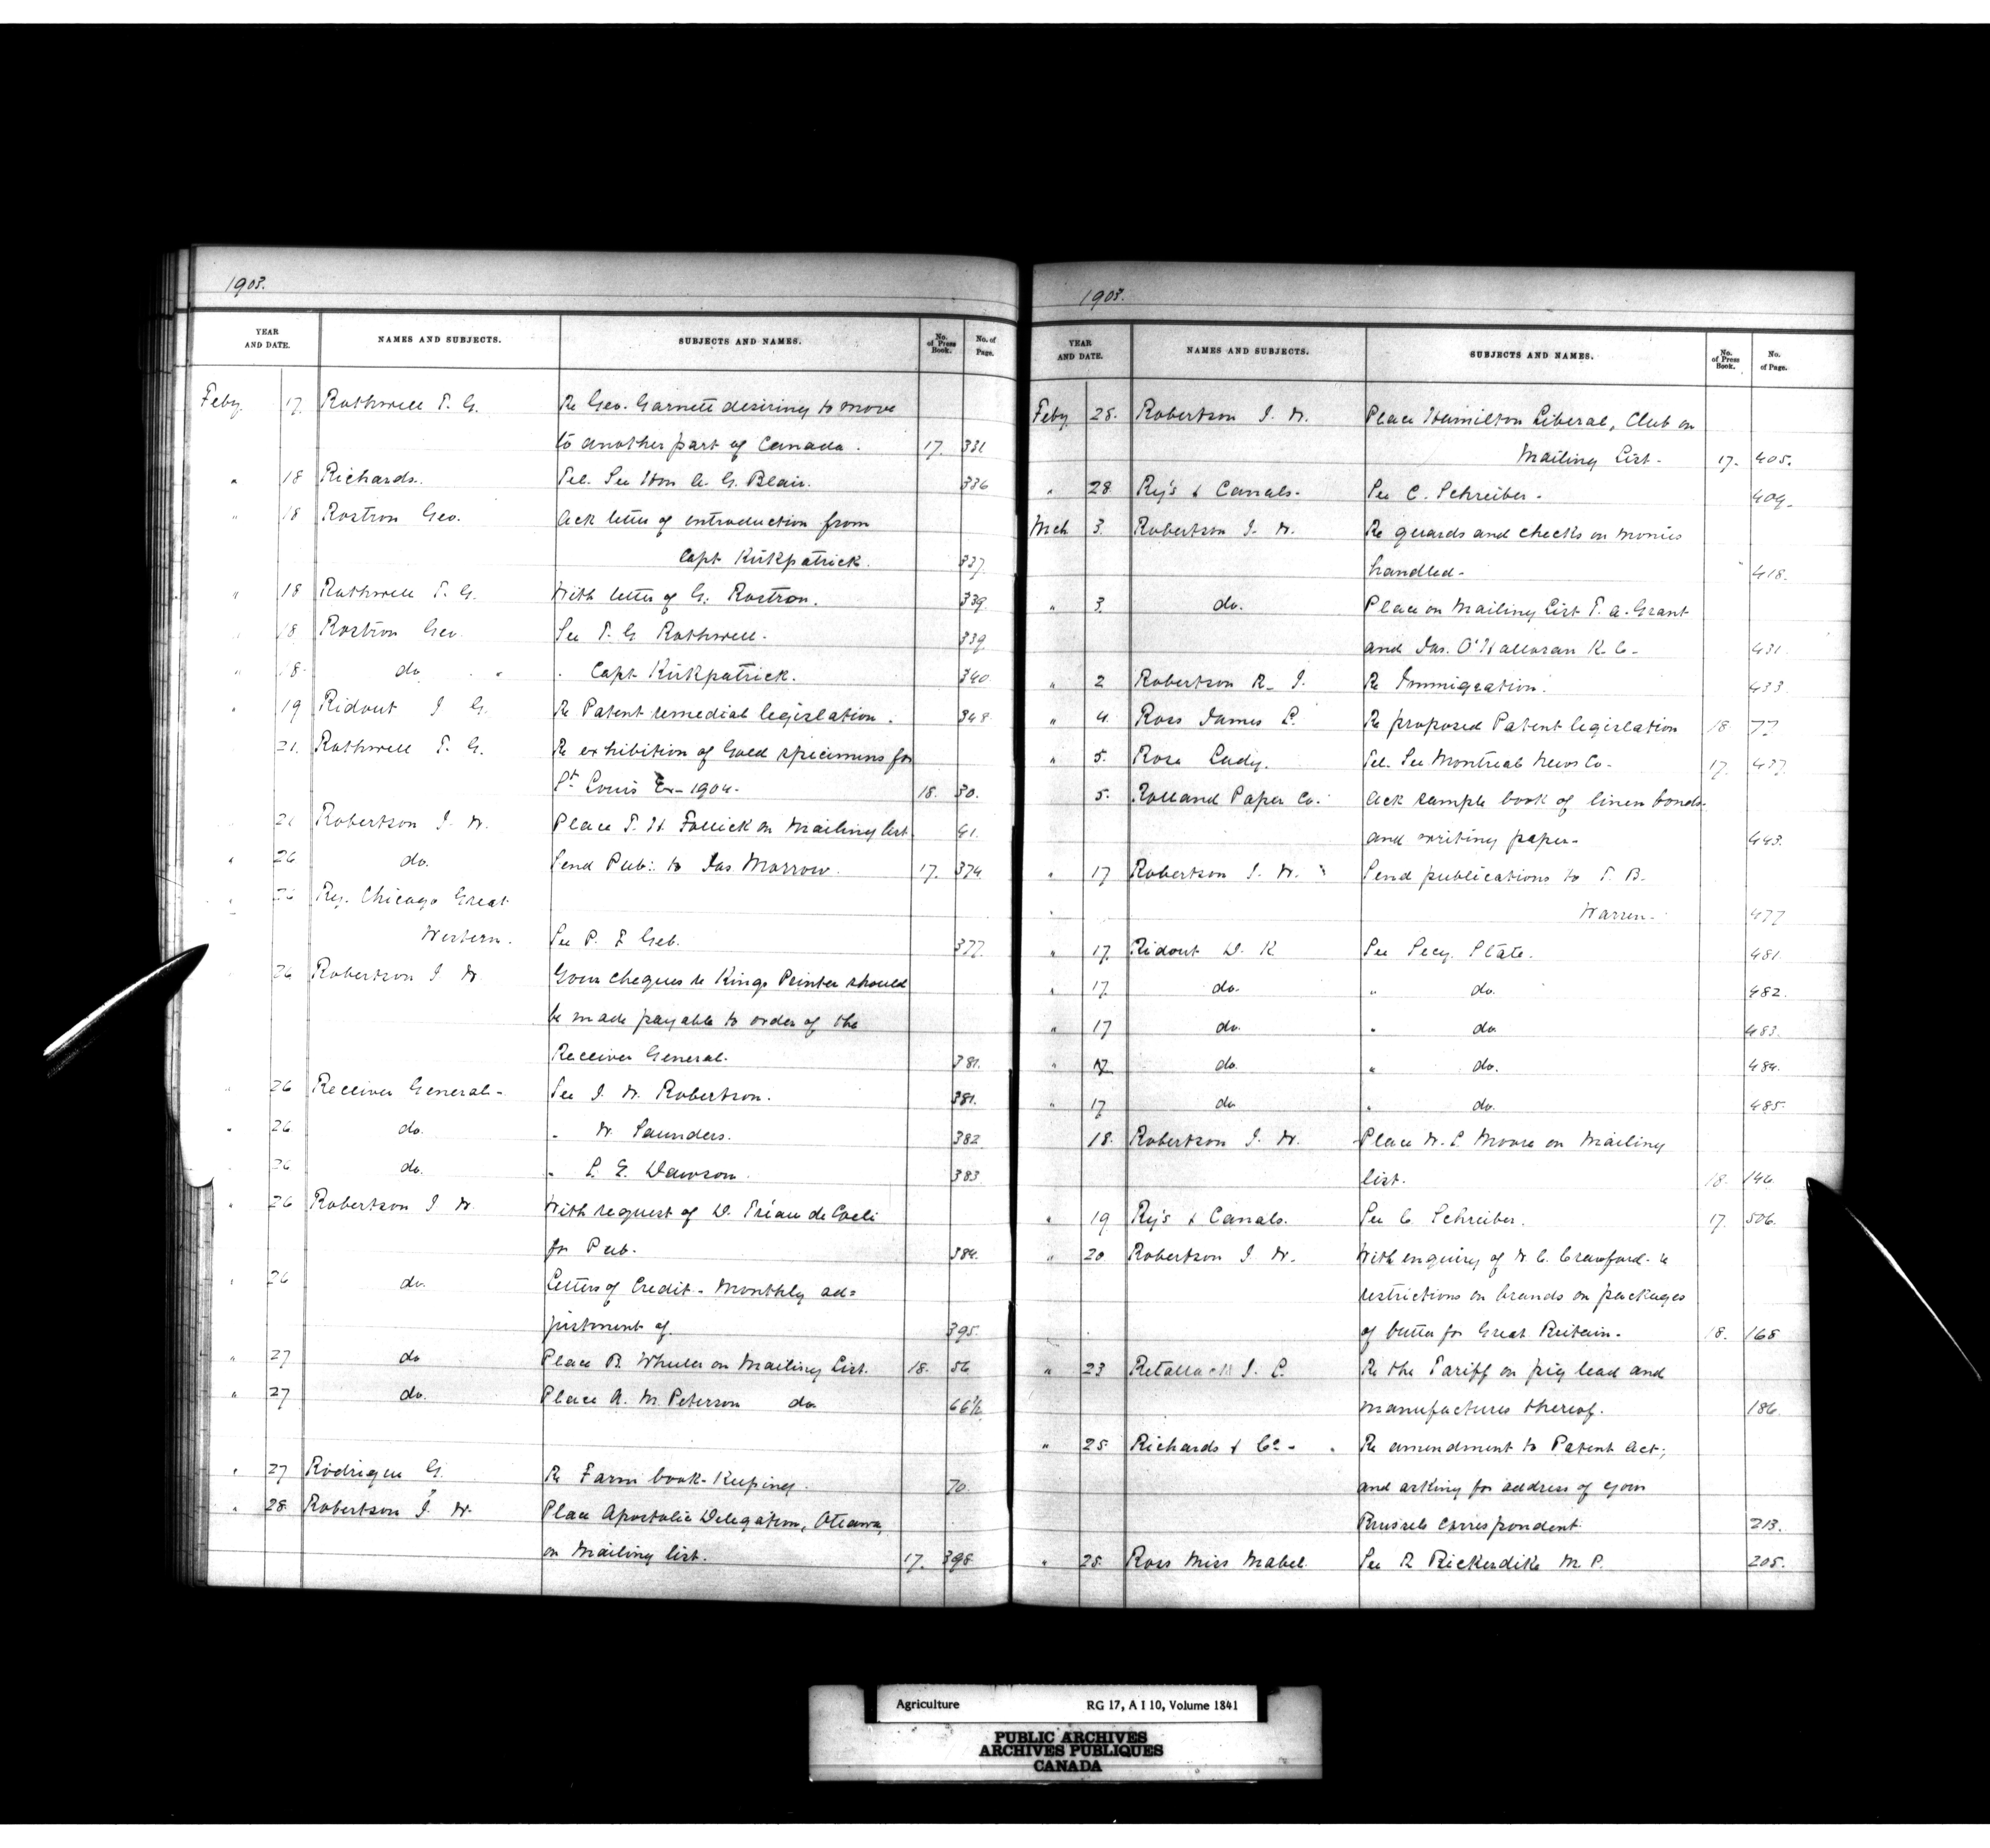 1903.
YEAR AND DATE. NAMES AND SUBJECTS. SUBJECTS AND NAMES. No. of Press Book. No. of Page.
Feby. 17. Rothwell T. G. Re Geo. Garnett desiring to move
to another part of Canada. 17. 331
" 18 Richards. Tel. See Hon A. G. Blair. 336
" 18 Rostron Geo. Ack letter of introduction from
Capt Kirkpatrick. 337.
" 18 Rothwell T. G. With letter of G. Rostron. 339.
" 18 Rostron Geo. See T. G Rothwell. 339
" 18. do " " Capt Kirkpatrick. 340.
" 19 Ridout J G. Re Patent remedial legislation. 348.
21. Rothwell T. G. Re exhibition of Gold specimens for
St Louis Ex- 1904. 18. 30.
21 Robertson J. W. Place T. H. Follick on Mailing list 41.
" 26 do. Send Pub: to Jas Morrow. 17. 374
" 26 Ry. Chicago Great
Western. See P. Geb. 377.
26 Robertson J W. Govn cheques re Kings Printer should
be made payable to order of the
Receiver General. 381.
" 26 Receiver General- See J. W. Robertson. 381.
" 26 do. " W Saunders. 382
" 26 do. " S. E. Dawson. 383
" 26 Robertson J W. With request of D. de Coeli
for Pub. 384.
" 26 do. Letters of Credit- Monthly ad=
justment of. 395.
" 27 do Place B. Wheeler on Mailing List. 18. 56
" 27 do. Place A. M. Peterson do 66½
" 27 Rodrigue G. Re Farm book-keeping. 70.
" 28 Robertson J. W. Place Apostolic Delegation, Ottawa,
on Mailing list. 17. 398
1903.
YEAR AND DATE. NAMES AND SUBJECTS. SUBJECTS AND NAMES. No. of Press Book. No. of Page.
Feby 28. Robertson J. W. Place Hamilton Liberal, Club on
Mailing List- 17. 405.
" 28 Ry's & Canals- See C. Schreiber- 409.
Mch 3. Robertson J. W. Re guards and checks on monies
handled- " 418.
" 3 do. Place on Mailing List T. A. Grant
and Jas. O'Halloran K. C- 431.
" 2 Robertson R. J. Re Immigration. 433.
" 4. Ross James L. Re proposed Patent legislation 18 77
" 5. Ross Lady. Tel. See Montreal News Co- 17. 437.
5. Rolland Paper Co. Ack sample book of linen bonds
and writing paper- 443.
" 17 Robertson J. W. Send publications to T. B.
" Warren- 477
" 17. Ridout D. K. See Secy. State. 481.
" 17 do. " do. 482.
" 17 do. " do. 483.
" 17 do. " do. 484.
" 17 do " do. 485.
18. Robertson J. W. Place W. S. Moore on Mailing
list. 18. 146.
" 19 Ry's & Canals. See C. Schreiber. 17. 506.
" 20 Robertson J. W. With enquiry of W. C. Crawford- re
restrictions on brands on packages
of butter for Great Britain- 18. 168
" 23 Retallack J. L. Re the Tariff on pig lead and
manufactures thereof. 186.
" 25 Richards & Co- Re amendment to Patent Act;
and asking for address of govn
Brussels correspondent. 213.
" 25. Ross Miss Mabel. See R Bickerdike M P. 205.
Agriculture RG 17, A I 10, Volume 1841
PUBLIC ARCHIVES
ARCHIVES PUBLIQUES
CANADA